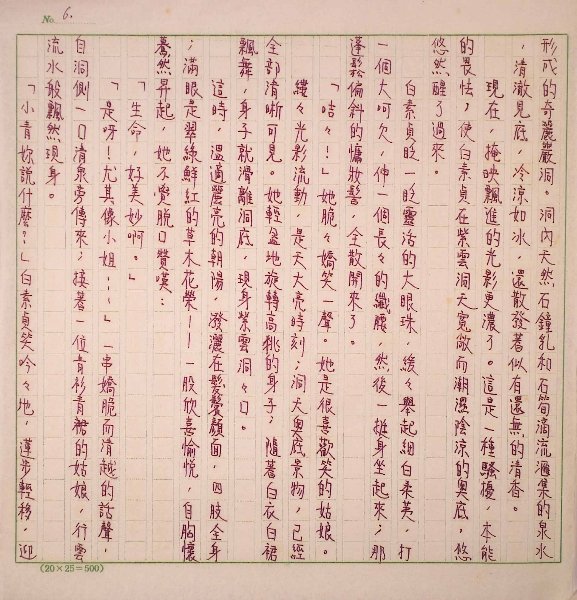 No. 6.
形成的奇麗巖洞。洞內天然石鐘乳和石筍滴流滙集的泉水
，清澈見底，冷涼如冰，還散發著似有還無的清香。
現在，掩映飄進的光影更濃了。這是一種騷擾，本能
的畏怯，使白素貞在紫雲洞天寬敞而潮溼陰涼的奧底，悠
悠然醒了過來。
白素貞眨一眨靈活的大眼珠，緩々舉起細白柔荑，打
一個大呵欠，伸一個長々的纖腰，然後一挺身坐起來；那
蓬鬆偏斜的慵妝髻，全散開來了。
「咭々！」她脆々嬌笑一聲。她是很喜歡笑的姑娘。
縷々光影流動，是天大亮時刻；洞天奧底景物，已經
全部清晰可見。她輕盈地旋轉高挑的身子；隨著白衣白裙
飄舞，身子就滑離洞底，現身紫雲洞々口。
這時，溫適麗亮的朝陽，潑灑在髮鬢顏面，四肢全身
；滿眼是翠綠鮮紅的草木花榮——一股欣喜愉悅，自胸懷
驀然昇起，她不覺脫口贊嘆：
「生命，好美妙啊。」
「是呀！尤其像小姐——」一串嬌脆而清越的話聲，
自洞側一口清泉旁傳來；接著一位青衫青裙的姑娘，行雲
流水般飄然現身。
「小青妳說什麼？」白素貞笑吟々地，蓮步輕移，迎
(20×25=500)